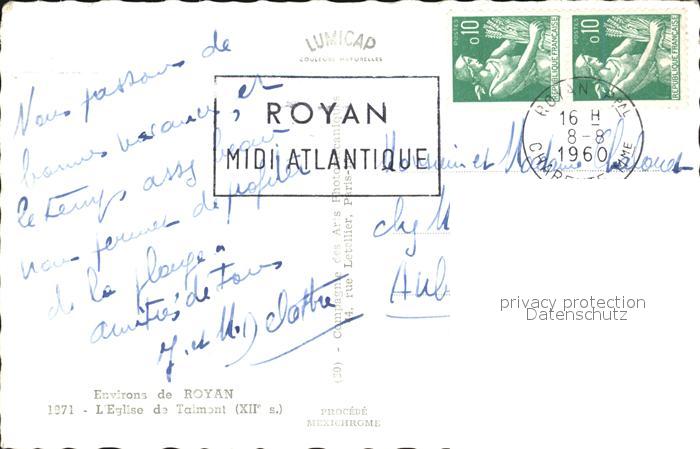 LUMICAP
COULEURS NATURELLES
POSTES 0,10 REPUBLIQUE FRANÇAISE
POSTES 0,10 REPUBLIQUE FRANÇAISE
ROYAN
MIDI ATLANTIQUE
ROYAN PAL
16 H
8-8
1960
Nous passons de
bonnes vacances, et
le temps assez beau
nous permet de profiter
de la plage.
amitiés de tous
J. et M.
Monsieur et Madame
chez M
Aub
(50) - Compagnie des Arts Photomécaniques
44, rue Letellier, Paris
privacy protection
Datenschutz
Environs de ROYAN
1971 - L'Eglise de Talmont (XIIe s.)
PROCÉDÉ
MEXICHROME